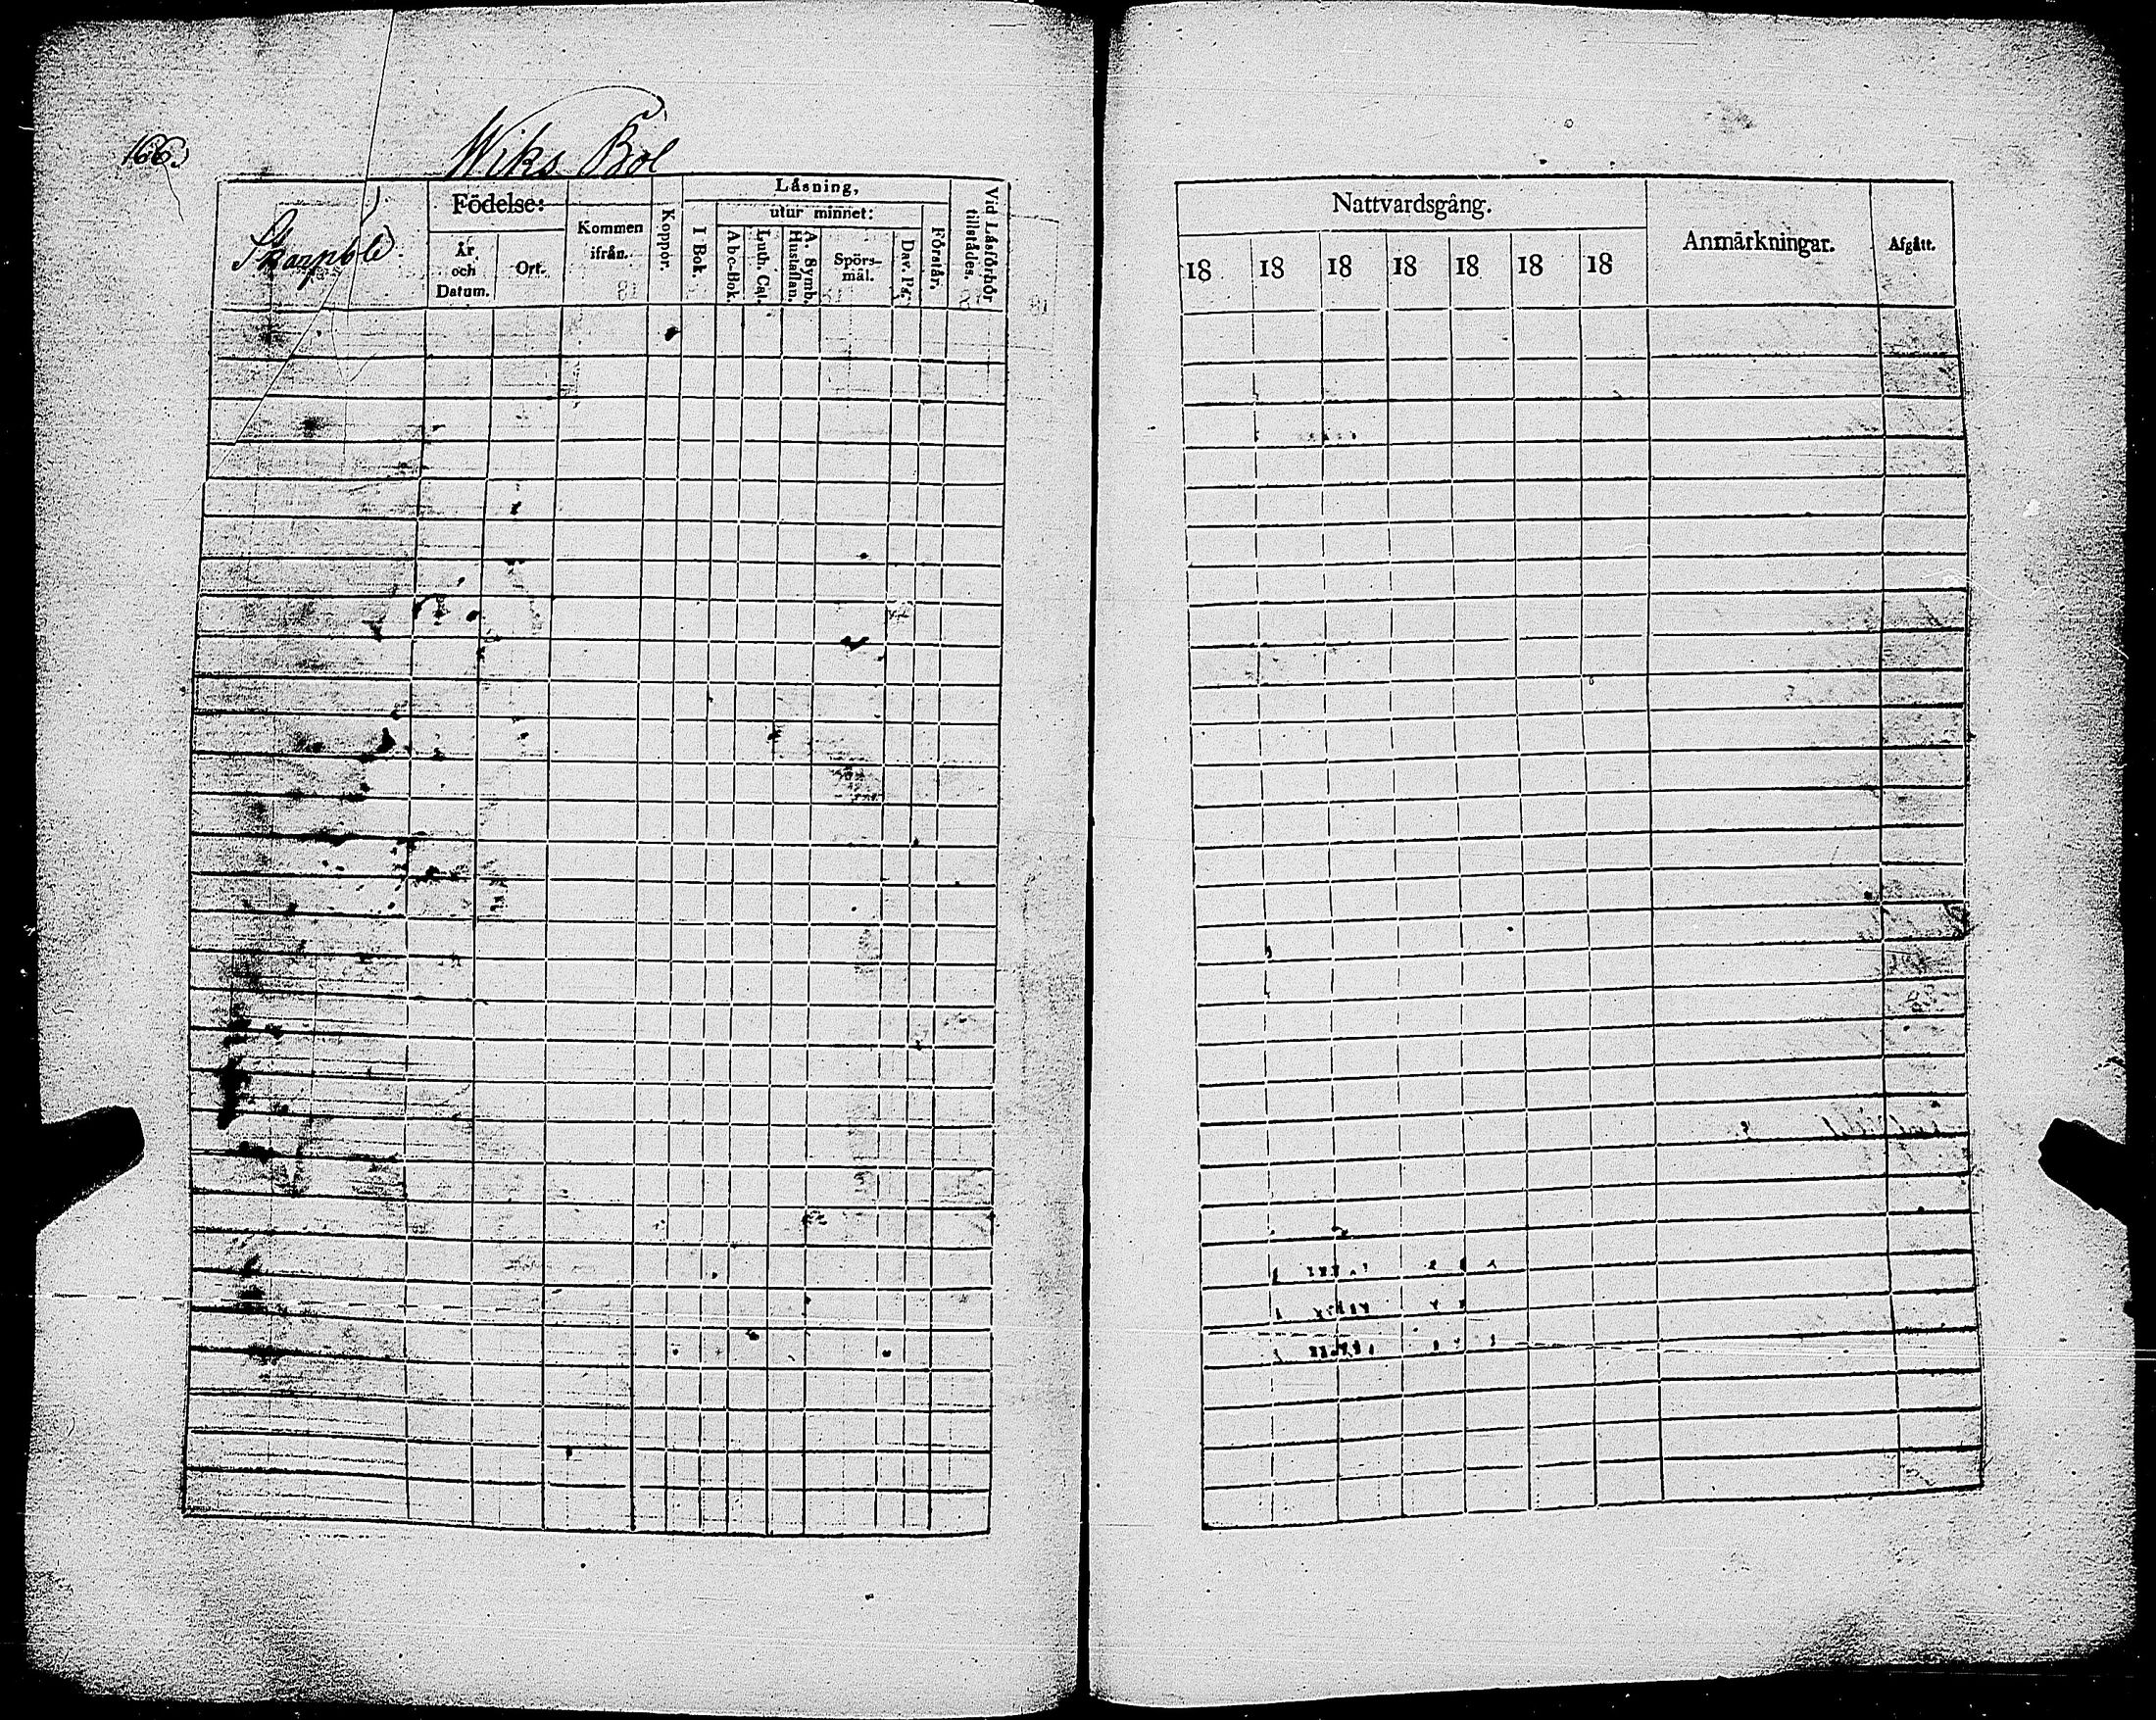 166.
Wiks Bol
Skarpböle.
Födelse:
År och Datum.
Ort.
Kommen ifrån.
Koppor.
Läsning,
I Bok.
utur minnet:
Abc-Bok.
Luth. Cat.
A. Symb. Hustaflan.
Spörs-mål.
Dav. Ps.
Förstår.
Vid Läsförhör tillstädes.
Nattvardsgång.
18 18 18 18 18 18 18
Anmärkningar.
Afgått.